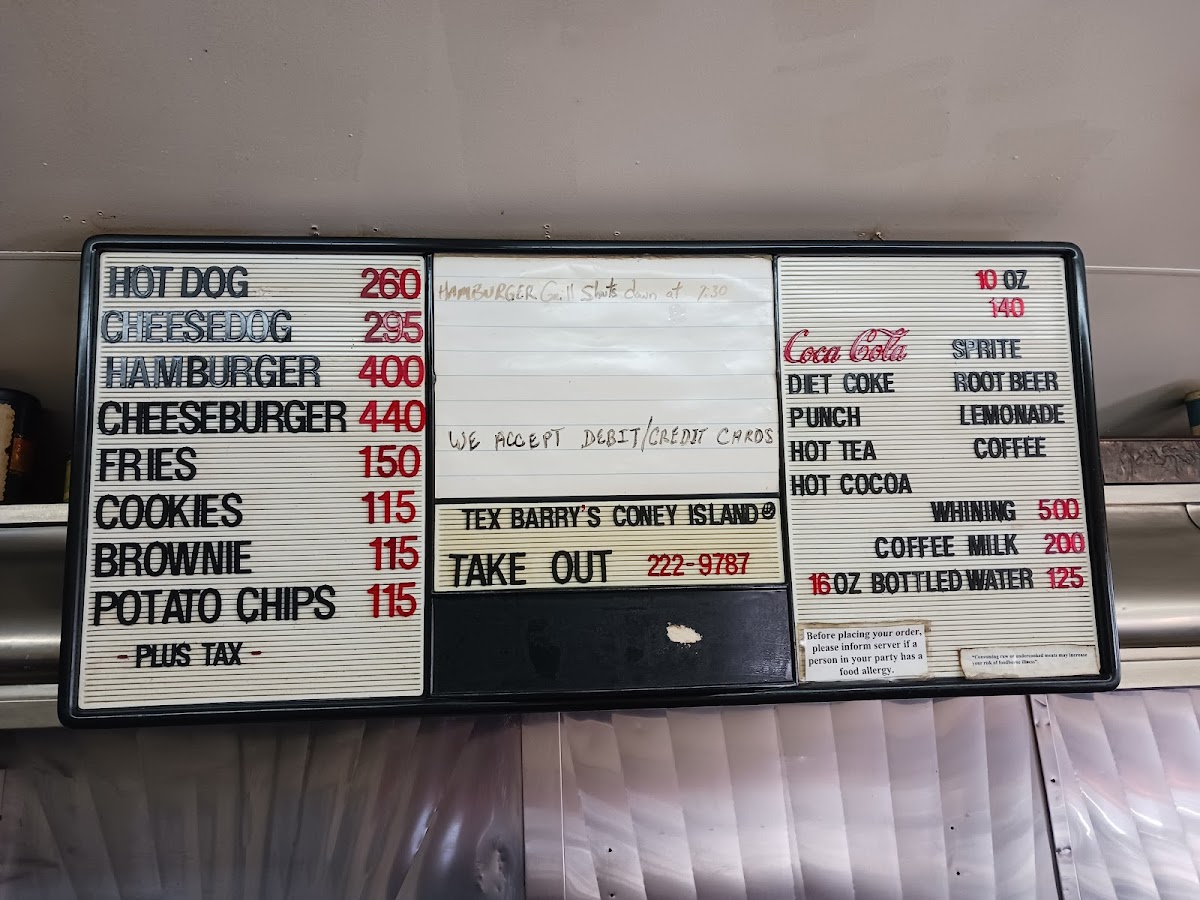 HOT DOG 260
CHEESEDOG 295
HAMBURGER 400
CHEESEBURGER 440
FRIES 150
COOKIES 115
BROWNIE 115
POTATO CHIPS 115
- PLUS TAX -
HAMBURGER Grill Shuts down at 7:30
WE ACCEPT DEBIT/CREDIT CARDS
TEX BARRY'S CONEY ISLAND
TAKE OUT 222-9787
10 OZ
140
Coca Cola SPRITE
DIET COKE ROOT BEER
PUNCH LEMONADE
HOT TEA COFFEE
HOT COCOA
WHINING 500
COFFEE MILK 200
16 OZ BOTTLED WATER 125
Before placing your order,
please inform server if a
person in your party has a
food allergy.
"Consuming raw or undercooked meats may increase
your risk of foodborne illness"